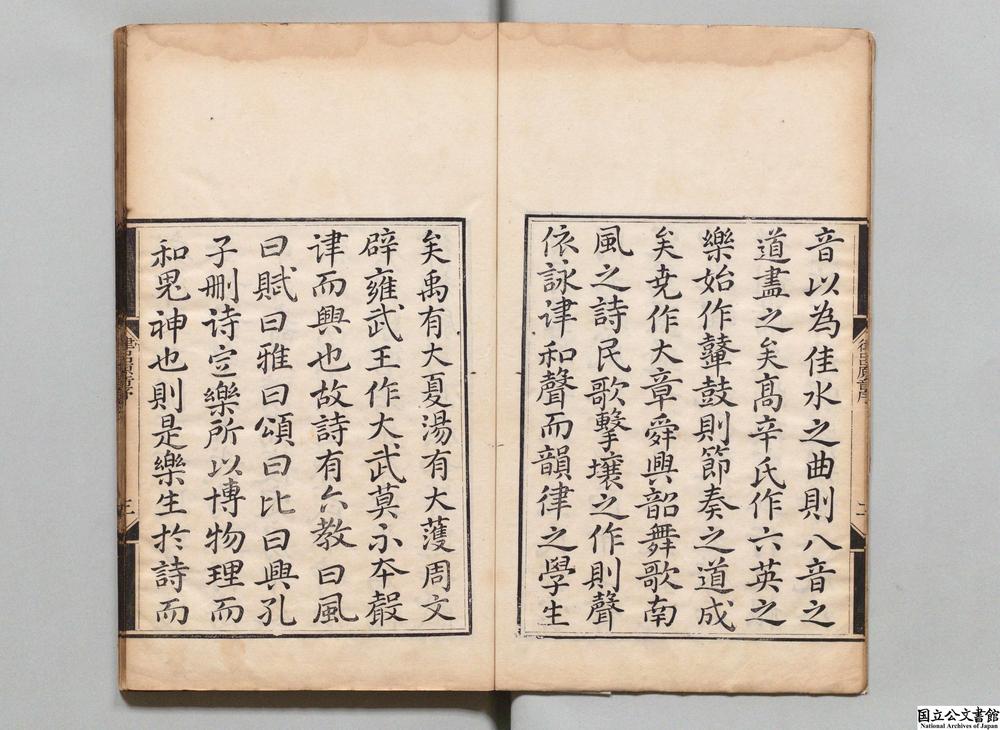 音以為佳水之曲則八音之
道盡之矣髙辛氏作六英之
樂始作鼙鼓則節奏之道成
矣尭作大章舜興韶舞歌南
風之詩民歌擊壤之作則聲
依詠律和聲而韻律之學生
矣禹有大夏湯有大䕶周文
辟雍武王作大武莫不夲聲
律而興也故詩有六教曰風
曰賦曰雅曰頌曰比曰興孔
子刪诗定樂所以博物理而
和鬼神也則是樂生扵詩而
二
三
国立公文書館
National Archives of Japan